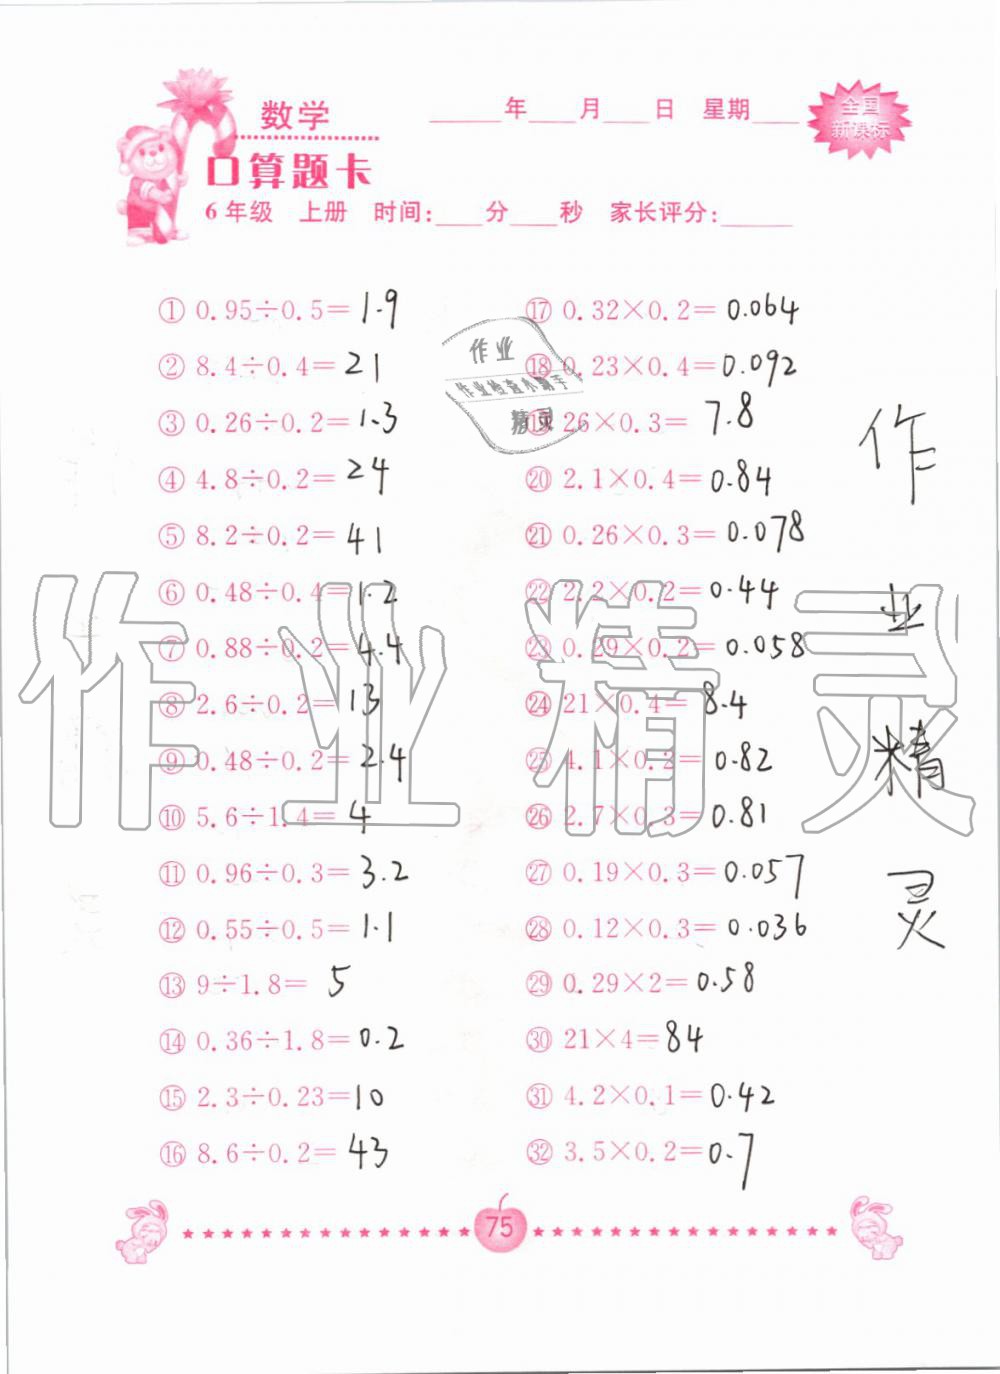 数学
口算题卡
____年____月____日 星期____
全国
新课标
6年级 上册 时间:____分____秒 家长评分:______
① 0.95÷0.5=1.9
② 8.4÷0.4=21
③ 0.26÷0.2=1.3
④ 4.8÷0.2=24
⑤ 8.2÷0.2=41
⑥ 0.48÷0.4=1.2
⑦ 0.88÷0.2=4.4
⑧ 2.6÷0.2=13
⑨ 0.48÷0.2=2.4
⑩ 5.6÷1.4=4
⑪ 0.96÷0.3=3.2
⑫ 0.55÷0.5=1.1
⑬ 9÷1.8=5
⑭ 0.36÷1.8=0.2
⑮ 2.3÷0.23=10
⑯ 8.6÷0.2=43
⑰ 0.32×0.2=0.064
⑱ 0.23×0.4=0.092
⑲ 26×0.3=7.8
⑳ 2.1×0.4=0.84
㉑ 0.26×0.3=0.078
㉒ 2.2×0.2=0.44
㉓ 0.29×0.2=0.058
㉔ 21×0.4=8.4
㉕ 4.1×0.2=0.82
㉖ 2.7×0.3=0.81
㉗ 0.19×0.3=0.057
㉘ 0.12×0.3=0.036
㉙ 0.29×2=0.58
㉚ 21×4=84
㉛ 4.2×0.1=0.42
㉜ 3.5×0.2=0.7
作业
作业检查小帮手
精灵
作
业
精
灵
作业精灵
75